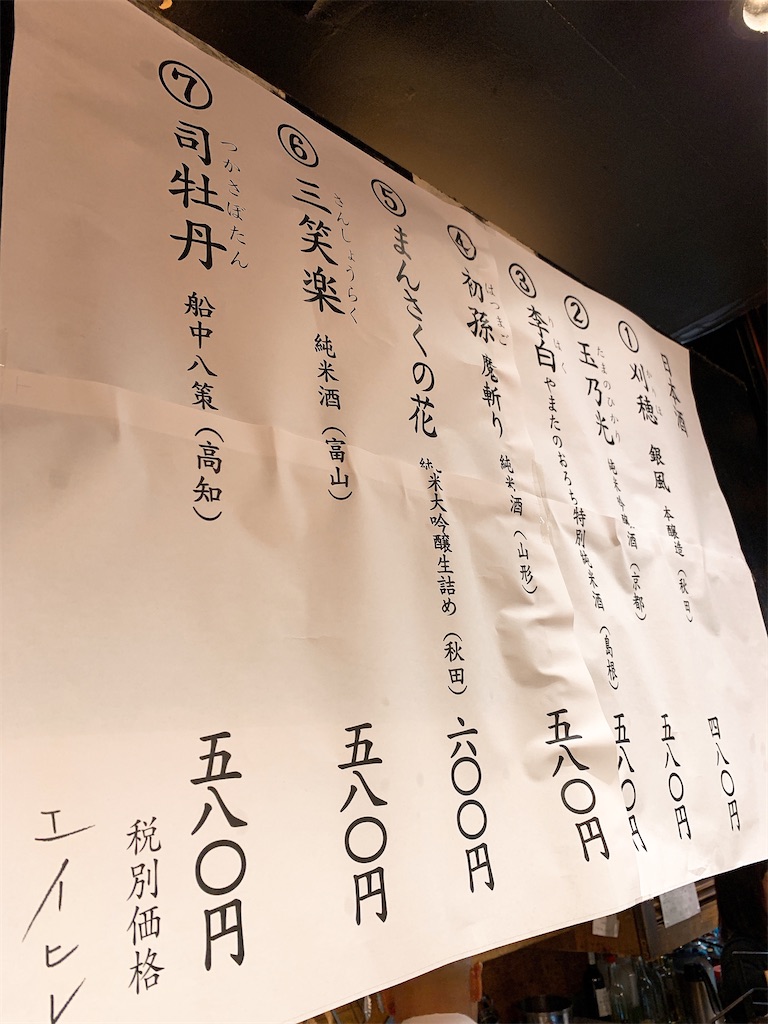 日本酒
① 刈穂 銀風 本醸造（秋田） 四八〇円
かりほ
② 玉乃光 純米吟醸酒（京都） 五八〇円
たまのひかり
③ 李白 やまたのおろち特別純米酒（島根） 五八〇円
りはく
④ 初孫 魔斬り 純米酒（山形） 五八〇円
はつまご
⑤ まんさくの花 純米大吟醸生詰め（秋田） 六〇〇円
⑥ 三笑楽 純米酒（富山） 五八〇円
さんしょうらく
⑦ 司牡丹 船中八策（高知） 五八〇円
つかさぼたん
税別価格
エイヒレ